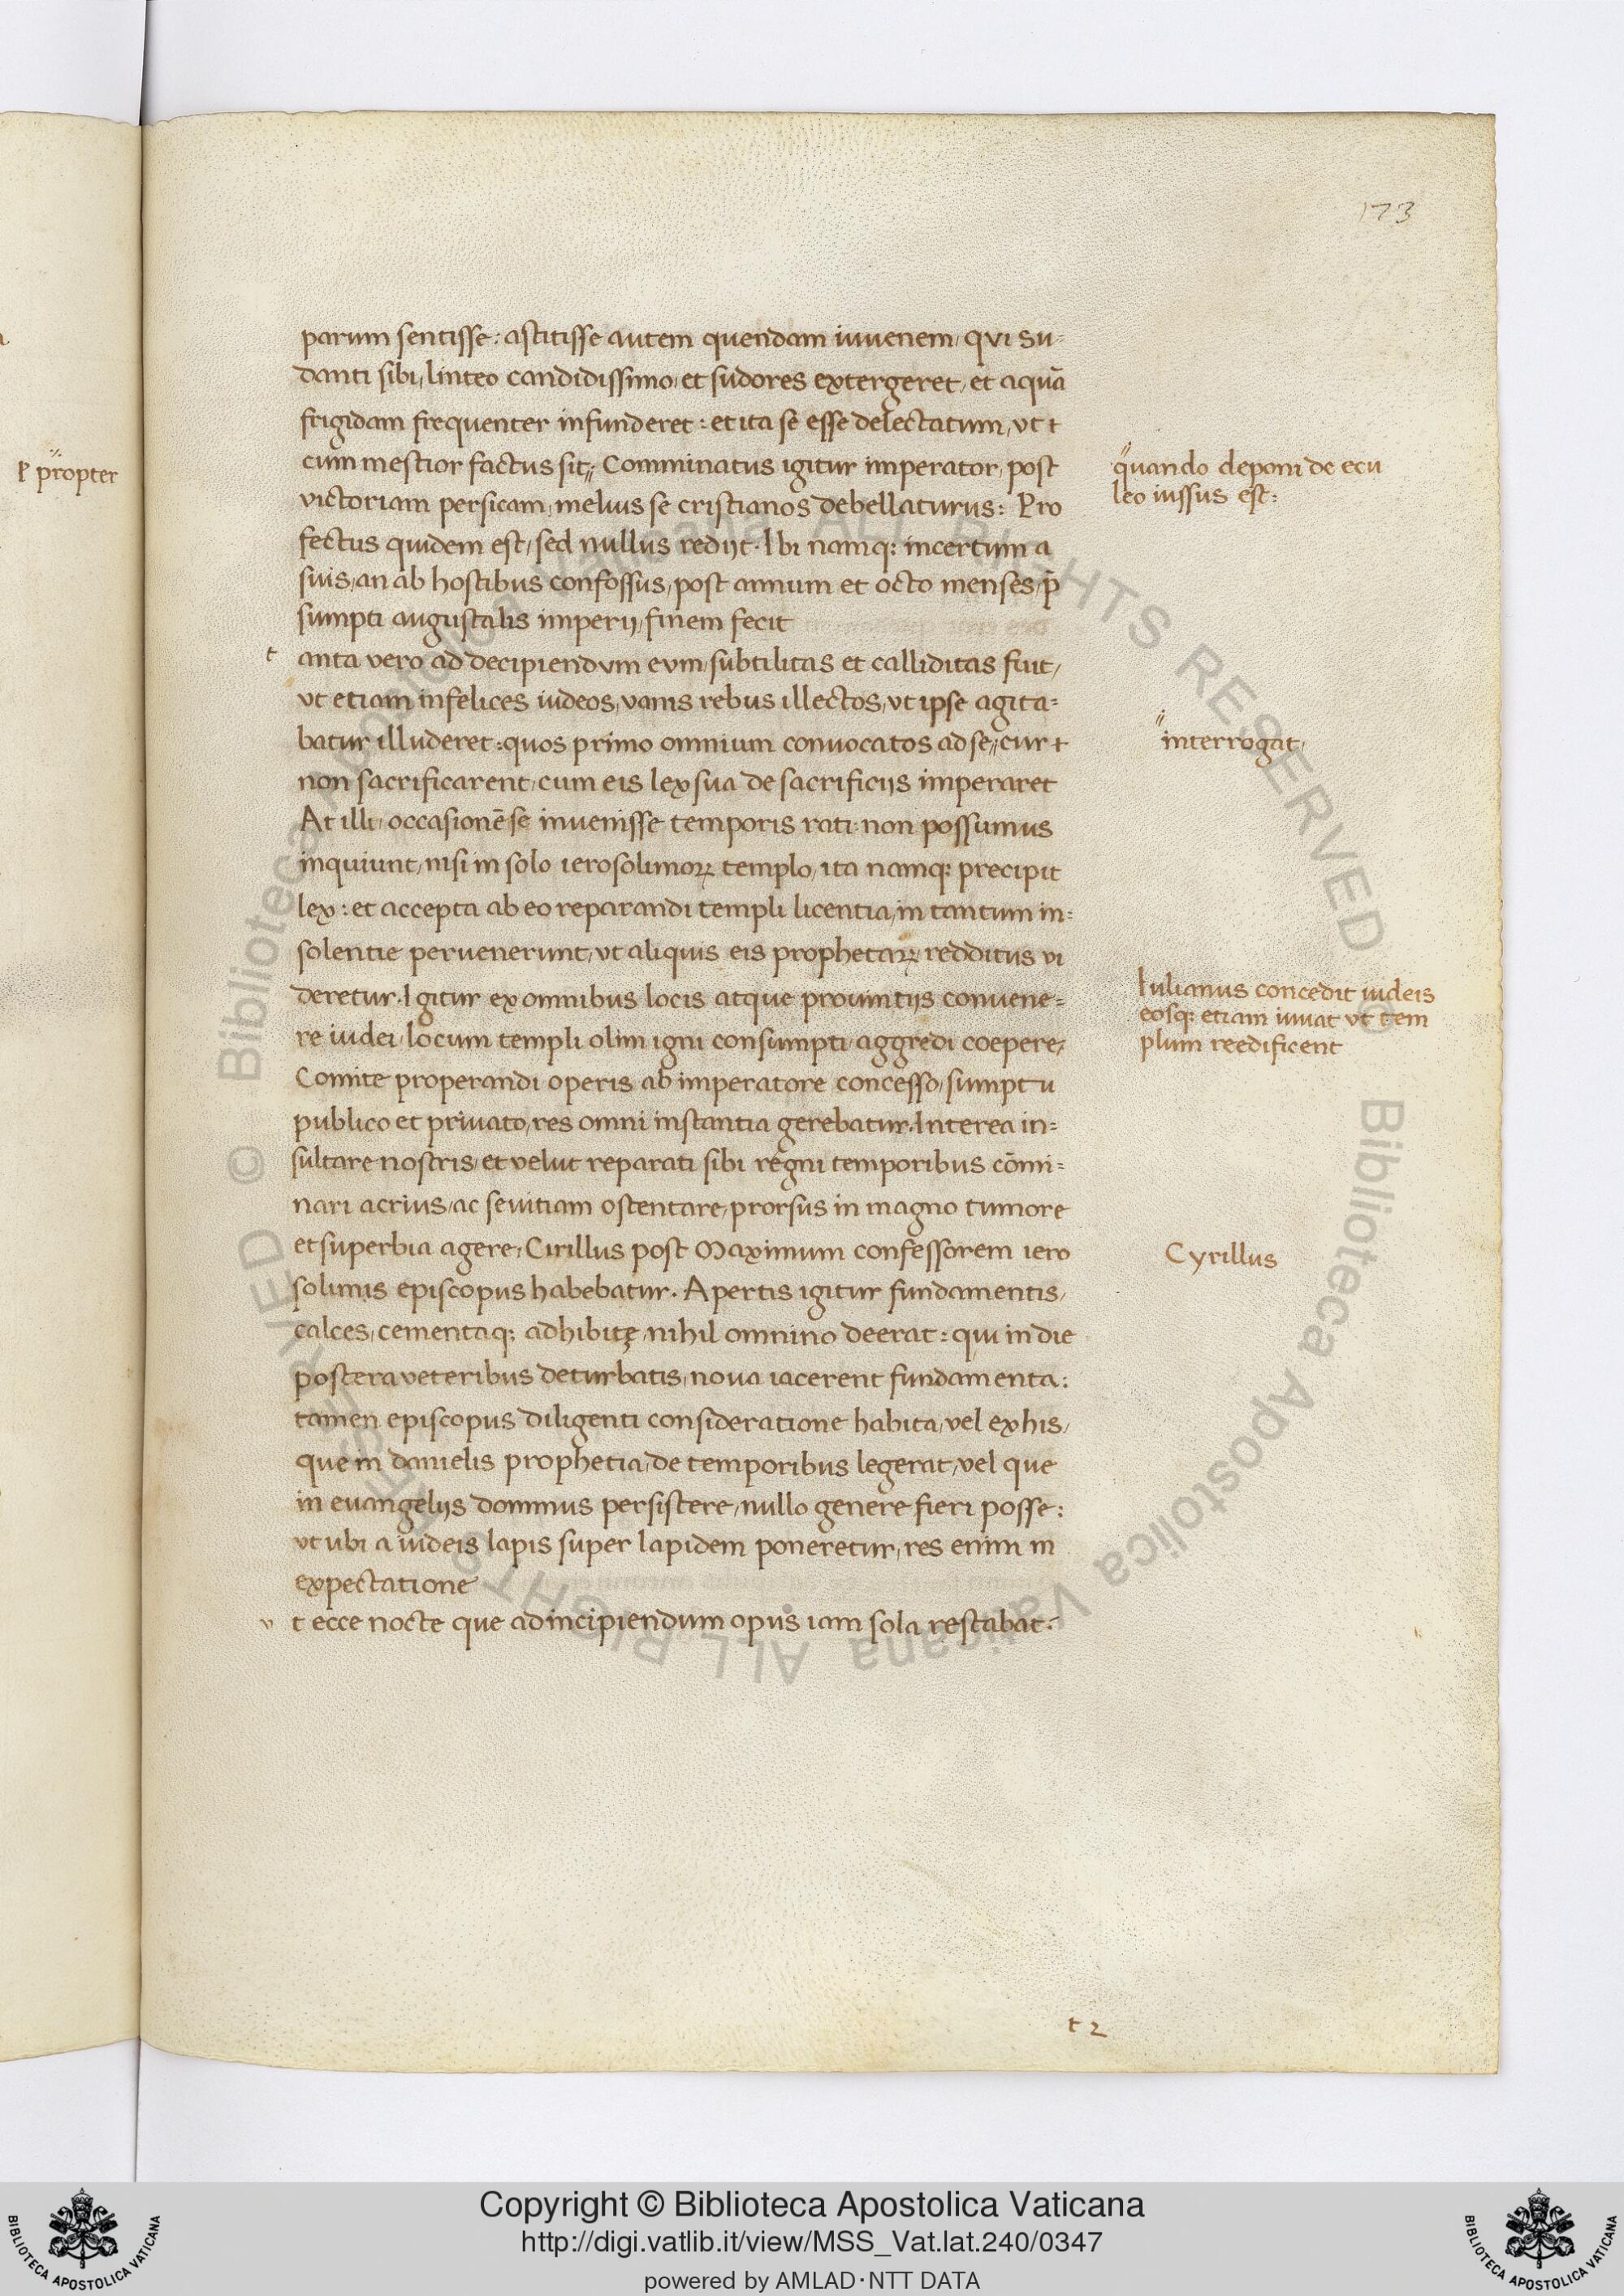 173
parum sentisse: astitisse autem quendam iuuenem, qui su-
danti sibi, linteo candidissimo, et sudores extergeret, et aquā
frigidam frequenter infunderet: et ita se esse delectatum, ut t
cum mestior factus sit,, Comminatus igitur imperator, post
victoriam persicam, melius se cristianos debellaturus: Pro
fectus quidem est, sed nullus redijt. Ibi namq; incertum a
suis, an ab hostibus confossus, post annum et octo menses, p̄
sumpti augustalis imperij, finem fecit
t anta vero ad decipiendum eum, subtilitas et calliditas fuit,
ut etiam infelices iudeos, vanis rebus illectos, ut ipse agita-
batur illuderet: quos primo omnium conuocatos ad se,, cur t
non sacrificarent, cum eis lex sua de sacrificijs imperaret
At illi, occasionē se inuenisse temporis rati: non possumus
inquiunt, nisi in solo ierosolimoꝝ templo, ita namq; precipit
lex: et accepta ab eo reparandi templi licentia, in tantum in-
solentie peruenerunt, ut aliquis eis prophetaꝝ redditus vi
deretur. Igitur ex omnibus locis atque prouintijs conuene-
re iudei, locum templi olim igni consumpti, aggredi coepere,
Comite properandi operis ab imperatore concesso, sumptu
publico et priuato, res omni instantia gerebatur. Interea in-
sultare nostris, et velut reparati sibi regni temporibus cōmi-
nari acrius, ac seuitiam ostentare, prorsus in magno tumore
et superbia agere, Cirillus post Maximum confessorem iero
solimis episcopus habebatur. Apertis igitur fundamentis,
calces, cementaq; adhibitę, nihil omnino deerat: qui in die
postera veteribus deturbatis, noua iacerent fundamenta:
tamen episcopus diligenti consideratione habita, vel ex his,
que in danielis prophetia, de temporibus legerat, vel que
in euangelijs dominus persistere, nullo genere fieri posse:
ut ubi a iudeis lapis super lapidem poneretur, res enim in
expectatione
v t ecce nocte que ad incipiendum opus iam sola restabat.
P propter
quando deponi de ecu
leo iussus est:
interrogat,
Iulianus concedit iudeis
eosq; etiam iuuat ut tem
plum reedificent
Cyrillus
t 2
© Biblioteca Apostolica Vaticana ALL RIGHTS RESERVED
© Biblioteca Apostolica Vaticana ALL RIGHTS RESERVED
Copyright © Biblioteca Apostolica Vaticana
http://digi.vatlib.it/view/MSS_Vat.lat.240/0347
powered by AMLAD·NTT DATA
BIBLIOTECA APOSTOLICA VATICANA
BIBLIOTECA APOSTOLICA VATICANA